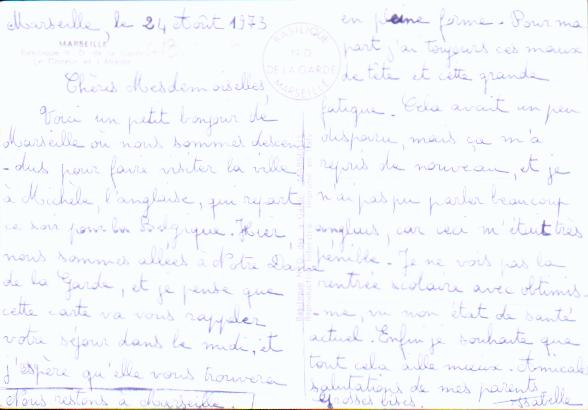 Marseille, le 24 Août 1973
MARSEILLE
Chères Mesdemoiselles,
Voici un petit bonjour de
Marseille où nous sommes descen
-dus pour faire visiter la ville
à Michèle, l'anglaise, qui repart
ce soir pour la Belgique. Hier,
nous sommes allées à Notre Dame
de la Garde, et je pense que
cette carte va vous rappeler
votre séjour dans le midi, et
j'espère qu'elle vous trouvera
Nous restons à Marseille.
BASILIQUE
N.D.
DE LA GARDE
MARSEILLE
en pleine forme. Pour ma
part j'ai toujours ces maux
de tête et cette grande
fatigue. Cela avait un peu
disparu, mais ça m'a
repris de nouveau, et je
n'ai pas pu parler beaucoup
anglais, car ceci m'était très
pénible. Je ne vois pas la
rentrée scolaire avec optimis
-me, vu mon état de santé
actuel. Enfin je souhaite que
tout cela aille mieux. Amicales
salutations de mes parents.
Grosses bises.